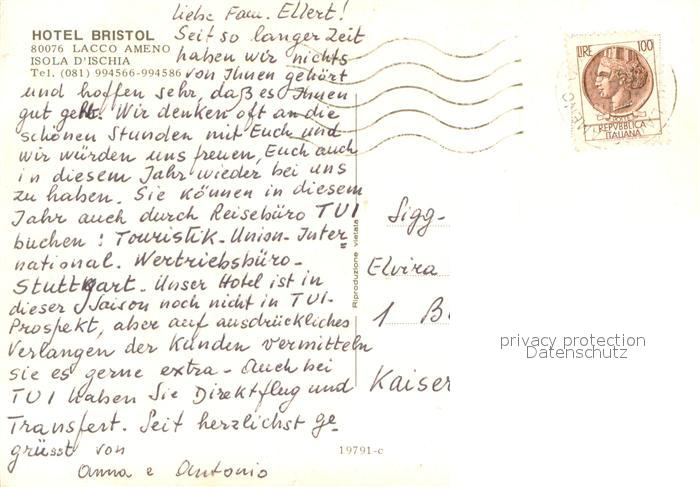 liebe Fam. Ellert!
HOTEL BRISTOL
80076 LACCO AMENO
ISOLA D'ISCHIA
Tel. (081) 994566-994586
Seit so langer Zeit
haben wir nichts
von Ihnen gehört
und hoffen sehr, daß es Ihnen
gut geht. Wir denken oft an die
schönen Stunden mit Euch und
wir würden uns freuen, Euch auch
in diesem Jahr wieder bei uns
zu haben. Sie können in diesem
Jahr auch durch Reisebüro TUI
buchen: Touristik-Union-Inter=
national. Wertriebsbüro-
Stuttgart. Unser Hotel ist in
dieser Saison noch nicht in TUI-
Prospekt, aber auf ausdrückliches
Verlangen der Kunden vermitteln
sie es gerne extra - Auch bei
TUI haben Sie Direktflug und
Transfert. Seit herzlichst ge-
grüsst von
Anna e Antonio
Riproduzione vietata
19791-c
Sigg-
Elvira
1 B
Kaiser
LIRE 100
REPVBBLICA
ITALIANA
privacy protection
Datenschutz